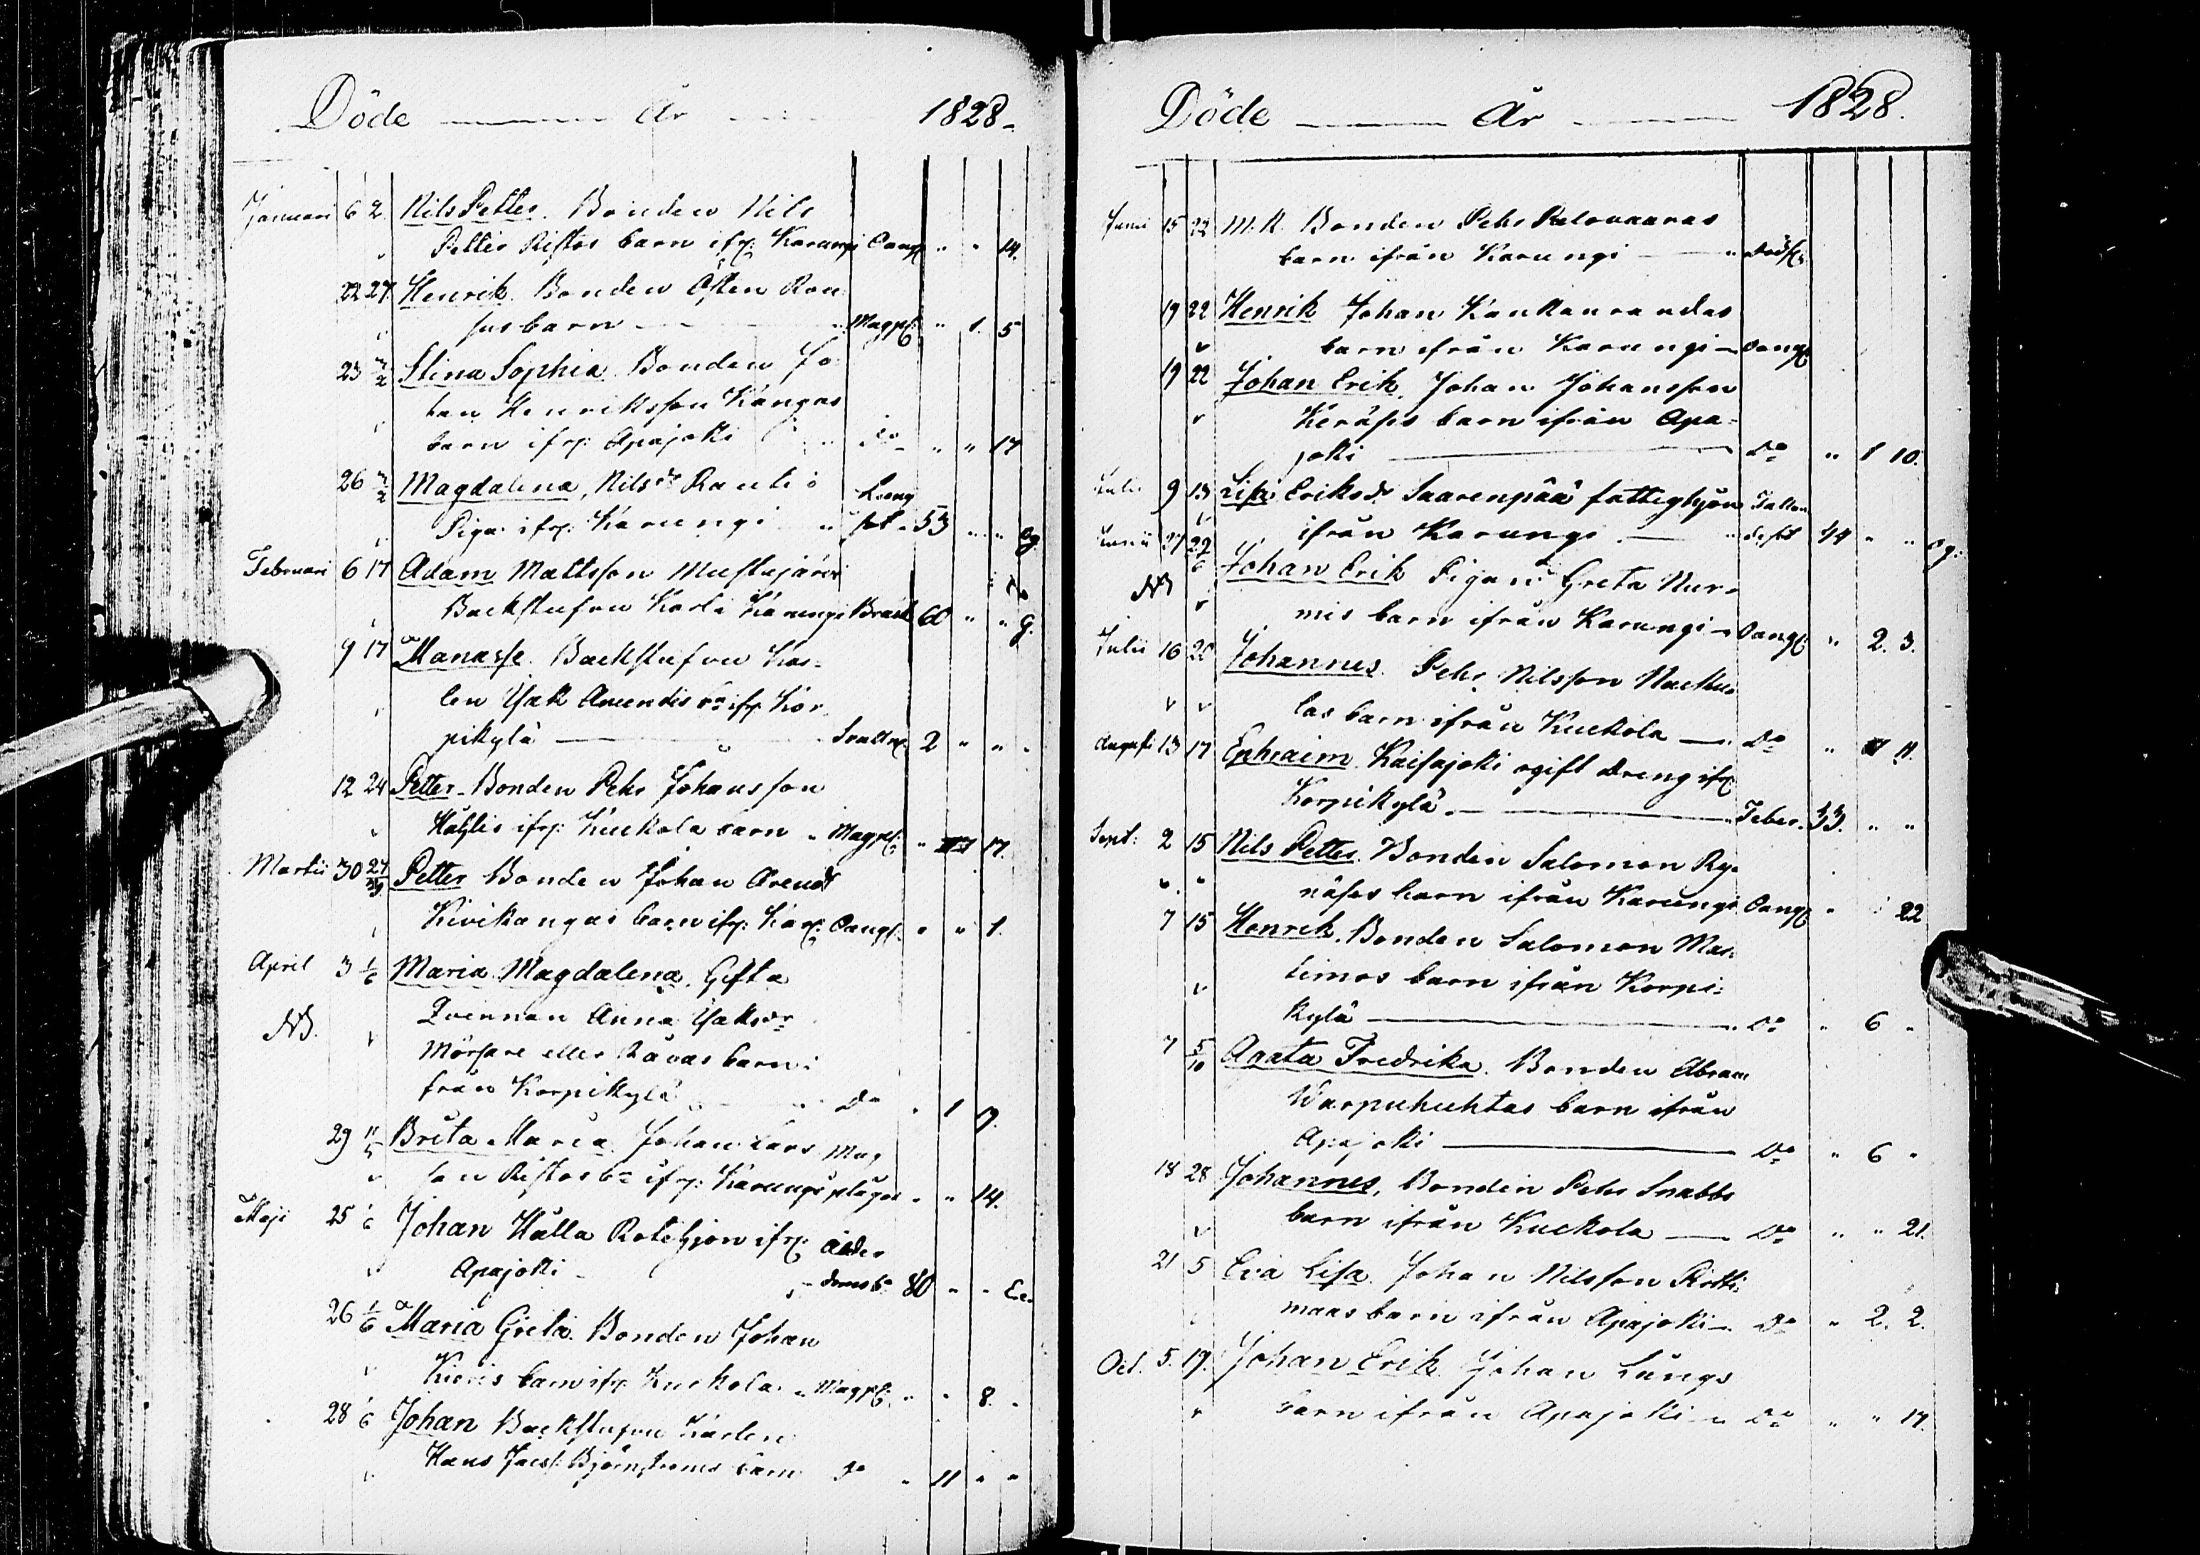 Döde — År — 1828.
Januari 6 2 Nils Petter. Bonden Nils
Petter Ristos barn ifr: Karungi Oangf: " " 14.
22 27 Henrik. Bonden Östen Rou
sus barn — Magpl: " 1. 5
23 3/2 Stina Sophia. Bonden Jo
han Henriksson Kangas
barn ifr: Apajoki Do " " 17
26 3/2 Magdalena, Nilsdr Rautio
Piga ifr: Karungi 53 " " Og.
Februari 6 17 Adam Mattsson Mustajärvi
Backstufvu Karl i Karungi 60 " " G.
9 17 Manasse. Backstufvu Kar-
len Isak Amendis bn ifr Kor
pikylä — 2 " "
12 24 Petter. Bonden Pehr Johansson
ifr: Kuckola barn " Magpl: " 17.
Martii 30 Petter Bonden Johan Arends
Kivikangas barn ifr: Kar: Oangf: " " 1.
April 3 1/6 Maria Magdalena. Gifta
NB. Qvinnan Anna Isaksdr
eller Rävas barn i
från Korpikylä Do " 1 19.
29 Brita Maria. Johan Lars Mag
son Ristos bn ifr: Karungi plågor " " 14.
Maji 25 1/6 Johan Hälla Rotehjon ifr: Ålder
Apajoki — domsb: 80 " "
26 1/6 Maria Greta. Bonden Johan
Kieris barn ifr Kuckola " Magpl: " " 8.
28 1/6 Johan Backstufvu Karlen
Hans Jacs: Björnströms barn Do " 11 " "
Döde — År — 1828.
Junii 15 22 M. N. Bonden Pehr Palovaaras
barn ifrån Karungi — " Dödf:
19 22 Henrik Johan Kankaanrandas
barn ifrån Karungi — Oangf:
19 22 Johan Erik. Johan Johansson
Keräses barn ifrån Apa-
joki — Do " 1 10.
Julii 9 13 Lisa Eriksdr Saarenpää fattighjon
ifrån Karungi — 44 " " Og.
Junii 27 29 Johan Erik Pigan Greta Nur-
NB mis barn ifrån Karungi — Oangf: " 2. 3.
Julii 16 20 Johannes. Pehr Nilsson
las barn ifrån Kuckola — Do " 11.
Augusti 13 17 Ephraim Kaisajoki ogift Dreng ifr
Korpikylä. — Feber. 33. " "
Sept: 2 15 Nils Petter. Bonden Salomon Ry-
näses barn ifrån Karungi Oangf " 22
7 15 Henrik. Bonden Salomon Mar-
timos barn ifrån Korpi-
kylä — Do " 6 "
7 5/10 Agata Fredrika. Bonden Abram
Warpuhuhtas barn ifrån
Apajoki — Do " 6 "
18 28 Johannes, Bonden Pehr Snabbs
barn ifrån Kuckola — Do " " 21.
21 5 Eva Lisa. Johan Nilsson
maas barn ifrån Apajoki — Do " 2. 2.
Oct. 5. 19. Johan Erik Johan Längs
barn ifrån Apajoki — Do " " 17.